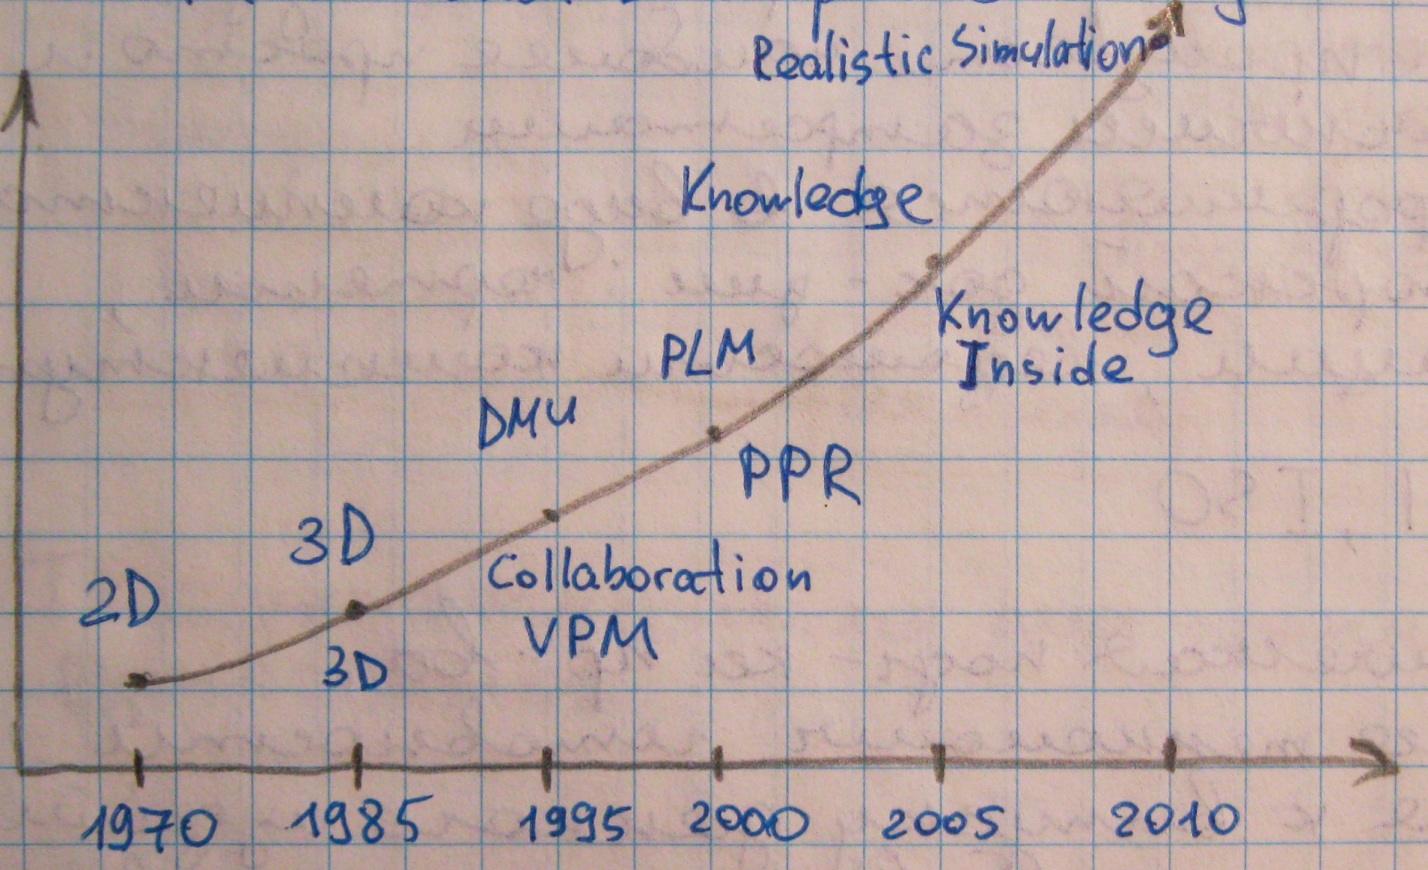 Realistic Simulation
Knowledge
Knowledge
Inside
PLM
DMU
PPR
3D
Collaboration
2D
VPM
3D
1970 1985 1995 2000 2005 2010